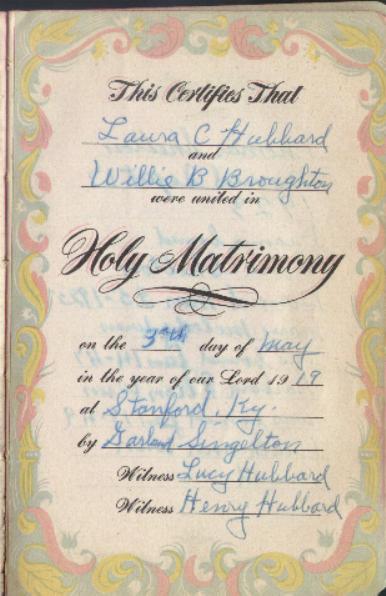 This Certifies That
Laura C Hubbard
and
Willie B Broughton
were united in
Holy Matrimony
on the day of May
in the year of our Lord 19 19
at Stanford, Ky.
by Garland Singelton
Witness Lucy Hubbard
Witness Henry Hubbard